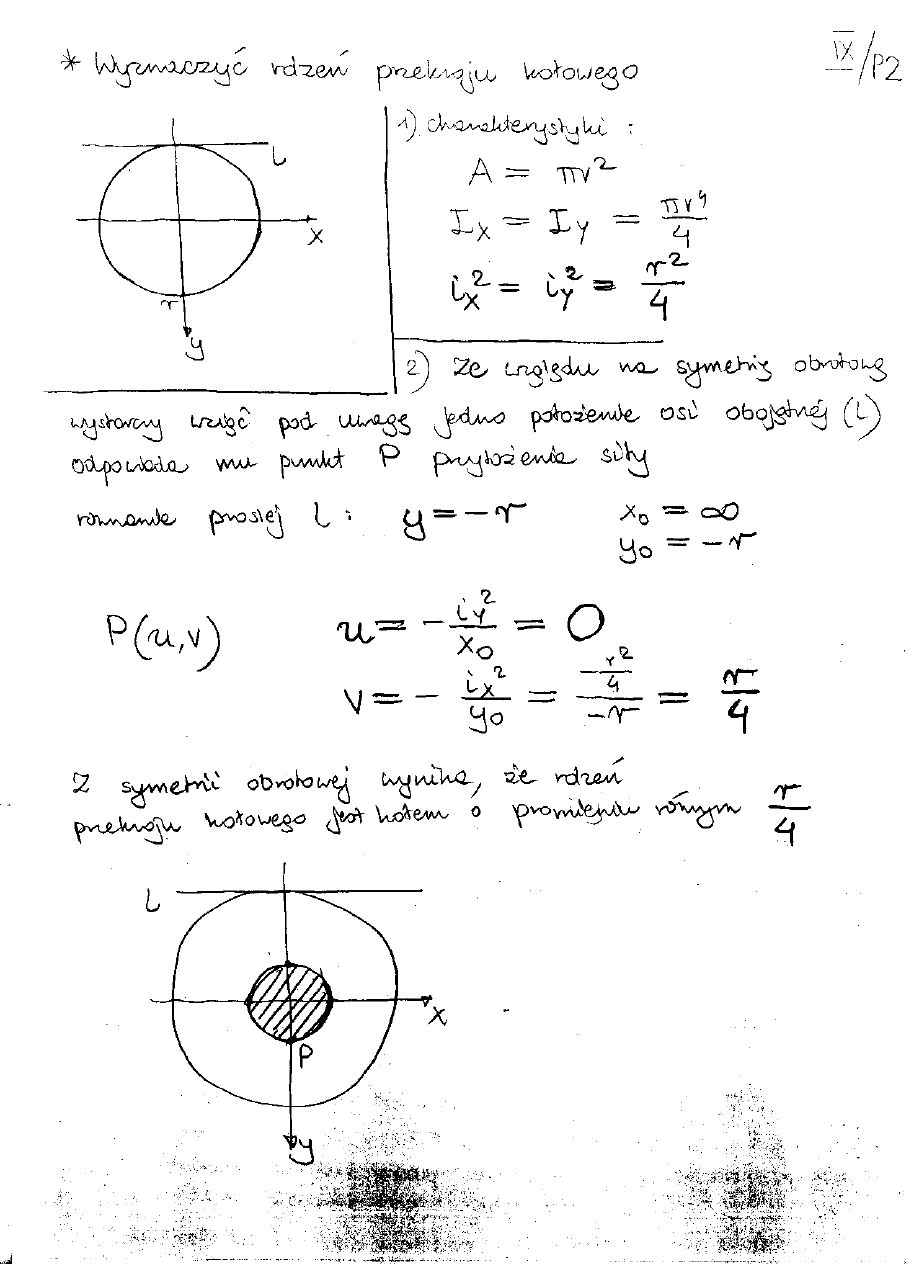 * Wyznaczyć rdzeń przekroju kołowego
IX/P2
l
x
r
y
1) charakterystyki :
A = πr²
Ix = Iy = πr⁴/4
ix² = iy² = r²/4
2) Ze względu na symetrię obrotową
wystarczy wziąć pod uwagę jedno położenie osi obojętnej (l)
odpowiada mu punkt P przyłożenia siły
równanie prostej l : y = -r
x₀ = ∞
y₀ = -r
P(u,v)
u = - iy²/x₀ = 0
v = - ix²/y₀ = (-r²/4)/(-r) = r/4
Z symetrii obrotowej wynika, że rdzeń
przekroju kołowego jest kołem o promieniu równym r/4
l
x
P
y